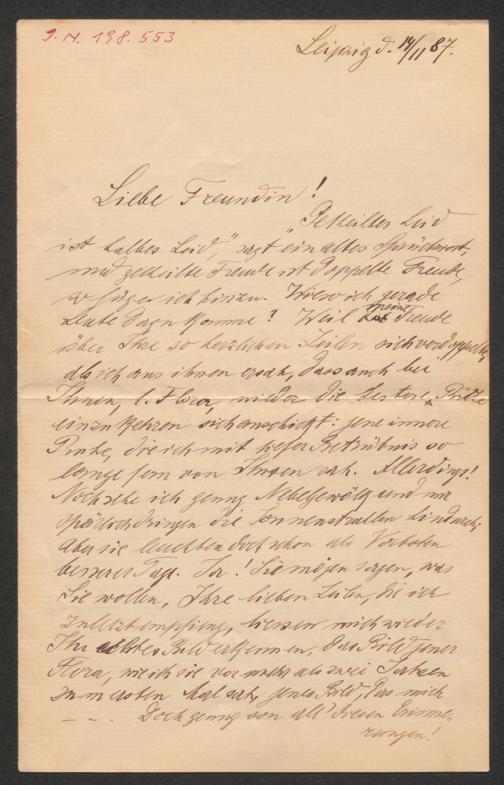 I. N. 198.553
Leipzig d. 14/11 87.
Liebe Freundin!
"Getheiltes Leid
ist halbes Leid," sagt ein altes Sprichwort,
und getheilte Freude ist doppelte Freude,
so füge ich hinzu. Wieso ich gerade
heute dazu komme? Weil meine Freude
über Ihre so herzlichen Zeilen sich verdoppelte,
als ich aus ihnen ersah, dass auch bei
Ihnen, l. Flora, wieder die heitere Ruhe
einzukehren sich anschickt: jene innere
Ruhe, die ich mit tiefer Betrübnis so
lange fern von Ihnen sah. Allerdings!
Noch sehe ich genug Nebelgewölk und nur
spärlich dringen die Sonnenstrahlen hindurch;
aber sie leuchten doch schon als Vorboten
besserer Tage. Ja! Sie mögen sagen, was
Sie wollen, Ihre lieben Zeilen, die ich
zuletzt empfing, liessen mich wieder
Ihr Bild erkennen, das Bild jener
Flora, wie ich sie vor mehr als zwei Jahren
zum ersten Mal sah, jenes Bild, das mich
— — . Doch genug von all' diesen Erinne-
rungen!